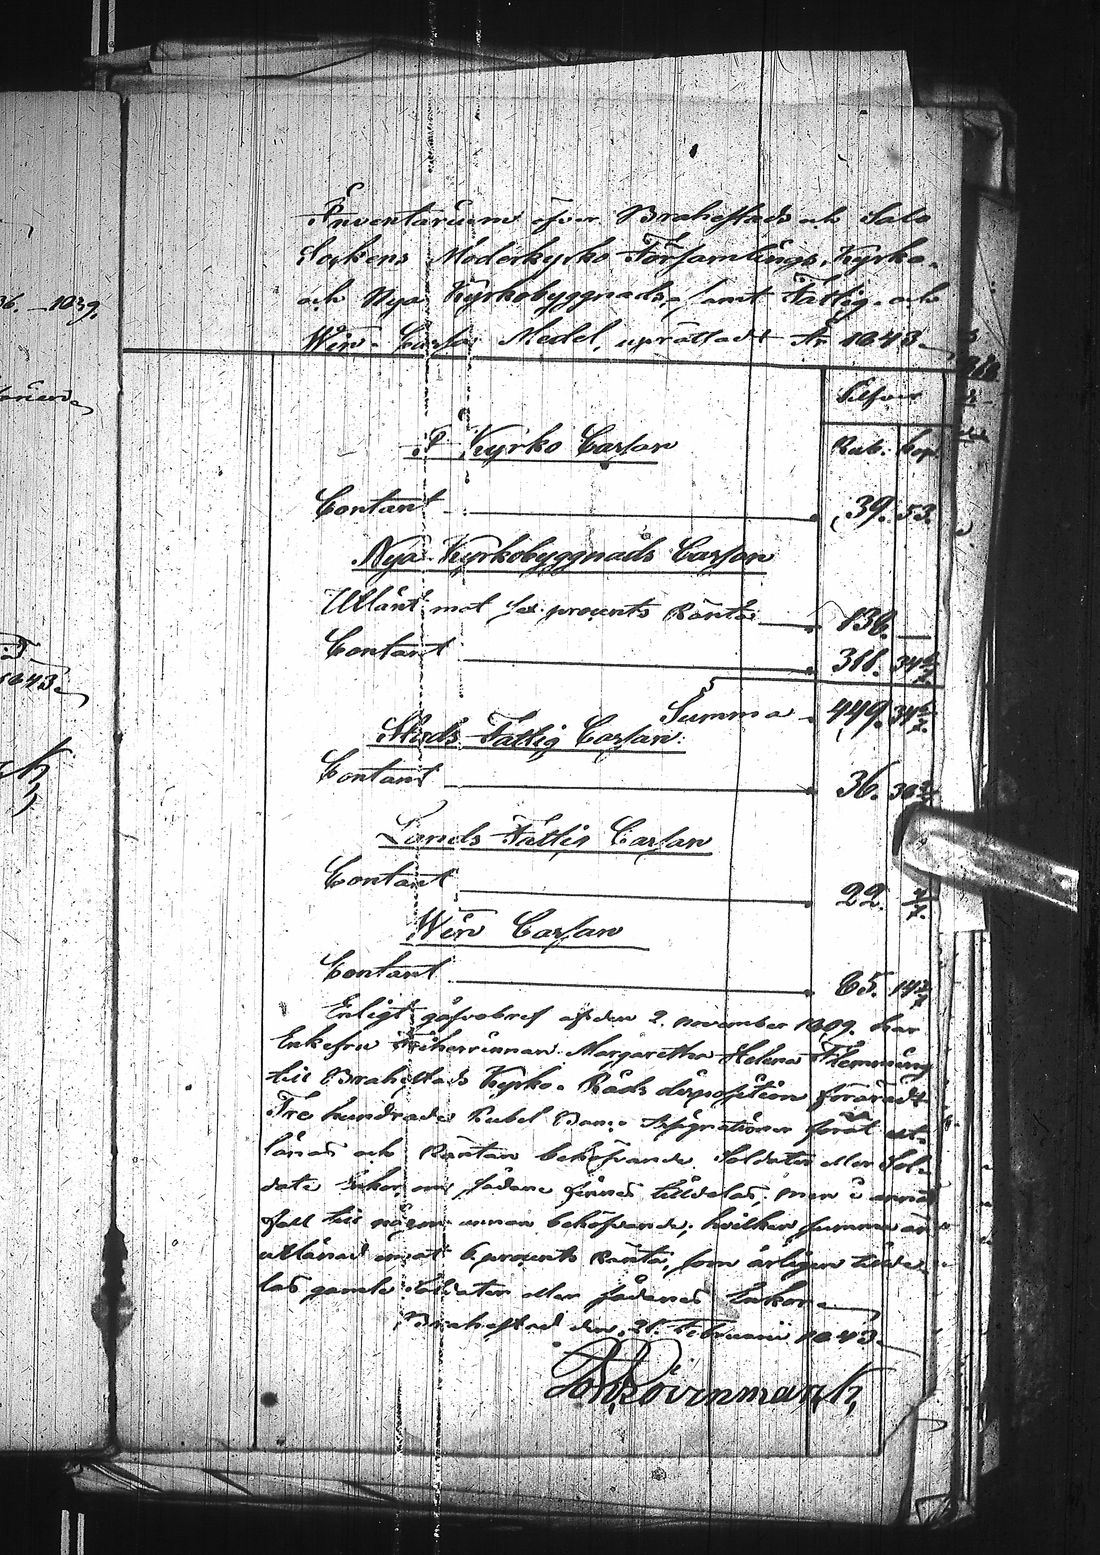 Inventarium öfver Brahestads och Salo
Sockens Moderkyrko Församlings, Kyrko-
och Nya Kyrkobyggnads-, samt Fattig- och
Win- Cassa Medel, uprättadt År 1843.
Silfver
Rub. kop.
I Kyrko Cassan
Contant 39. 53.
Nya Kyrkobyggnads Cassan
Utlånt mot sex procents Ränta 136. —
Contant 34 6/7
Summa 449. 34 6/7.
Stads Fattig Cassan.
Contant 36.
Lands Fattig Cassan
Contant 22. 4/7.
Win Cassan
Contant 65.
Enligt gåfvobref af den 2. november 1809. har
Enkefru Friherrinnan Margaretha Helena Flemming
till Brahestads Kyrko- Råds disposition föräradt
Tre hundrade Rubel Banco Assignationer för att ut-
lånas och Räntan behöfvande Soldater eller Sol-
date Enkor om sådane finnes tilldelas, men i annat
fall till någon annan behöfvande; hvilken summa är
utlånad emot 6 procents Ränta, som årligen tillde-
las gamla Soldater eller sådanes Enkor.
Brahestad den 21. Februarii 1843.
36. –1839.
1843.